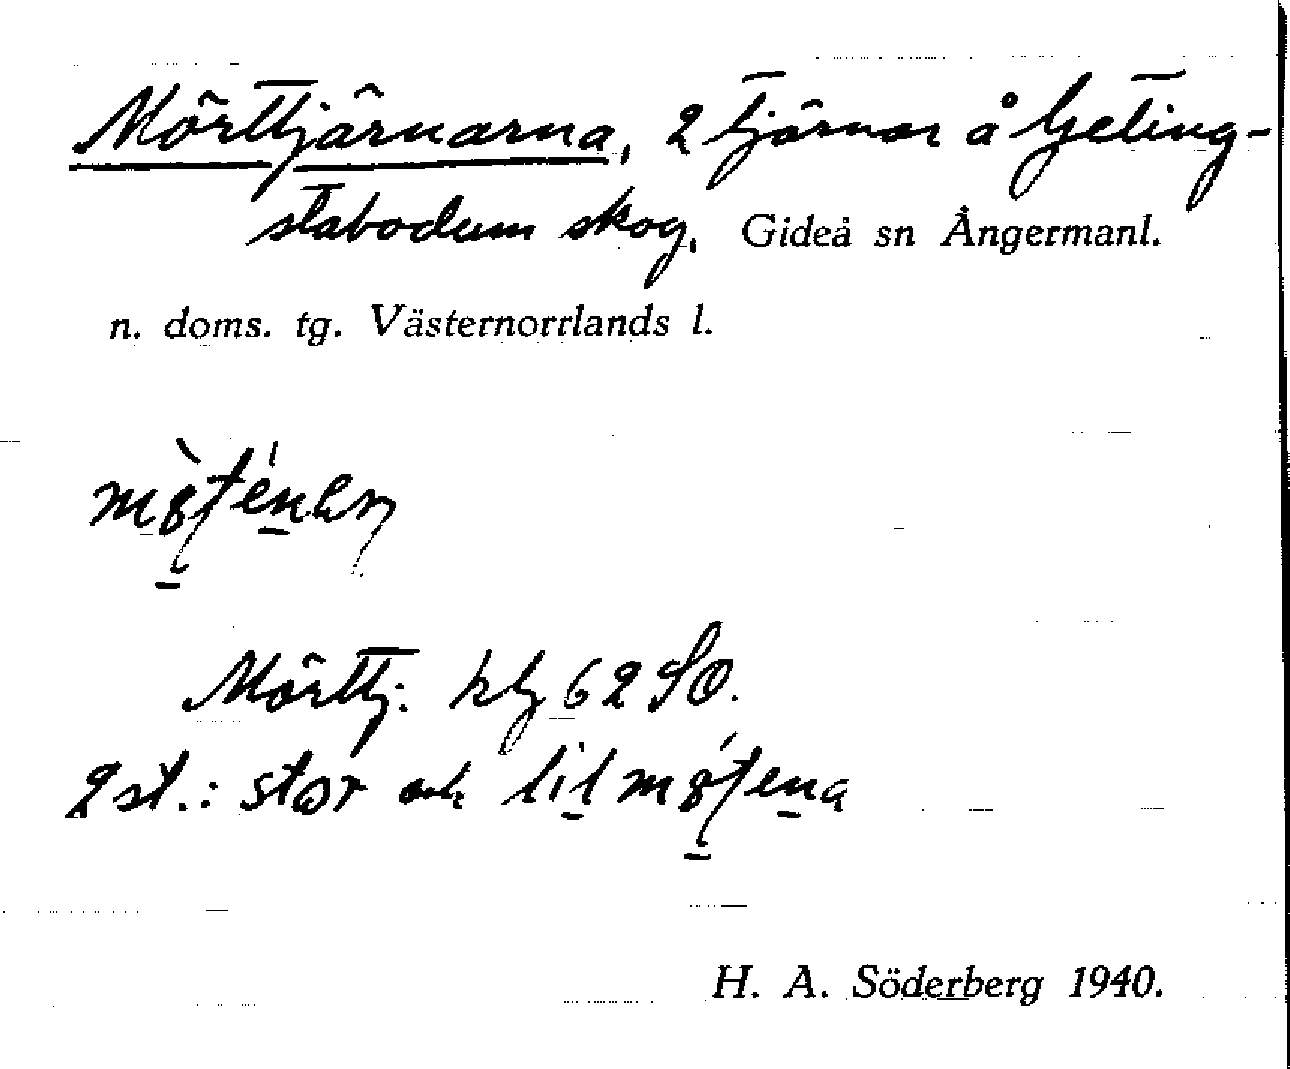 Mörttjärnarna, 2 tjärnar å Geting-
stabodum skog, Gideå sn Ångermanl.
n. doms. tg. Västernorrlands l.
Mörttj. kbl 62 SO.
2 st.: stor och lil
H. A. Söderberg 1940.